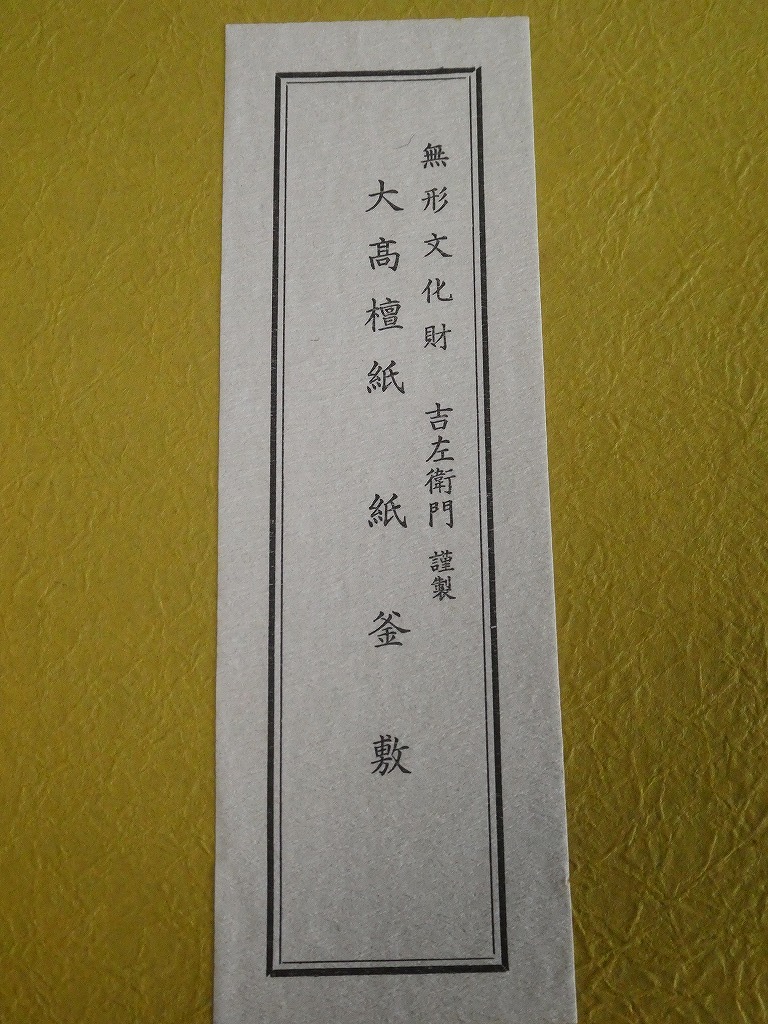 無形文化財 吉左衛門 謹製
大髙檀紙 紙釜敷